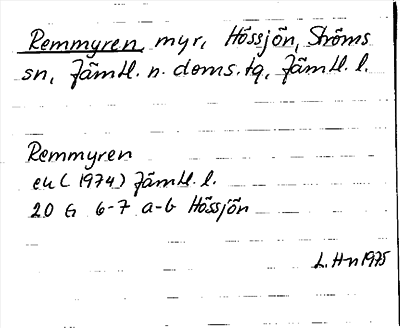 Remmyren, myr, Hössjön, Ströms
sn, Jämtl. n. doms.tq, Jämtl. l.
Remmyren
ek (1974) Jämtl. l.
20 G 6-7 a-b Hössjön
L. H-n 1975